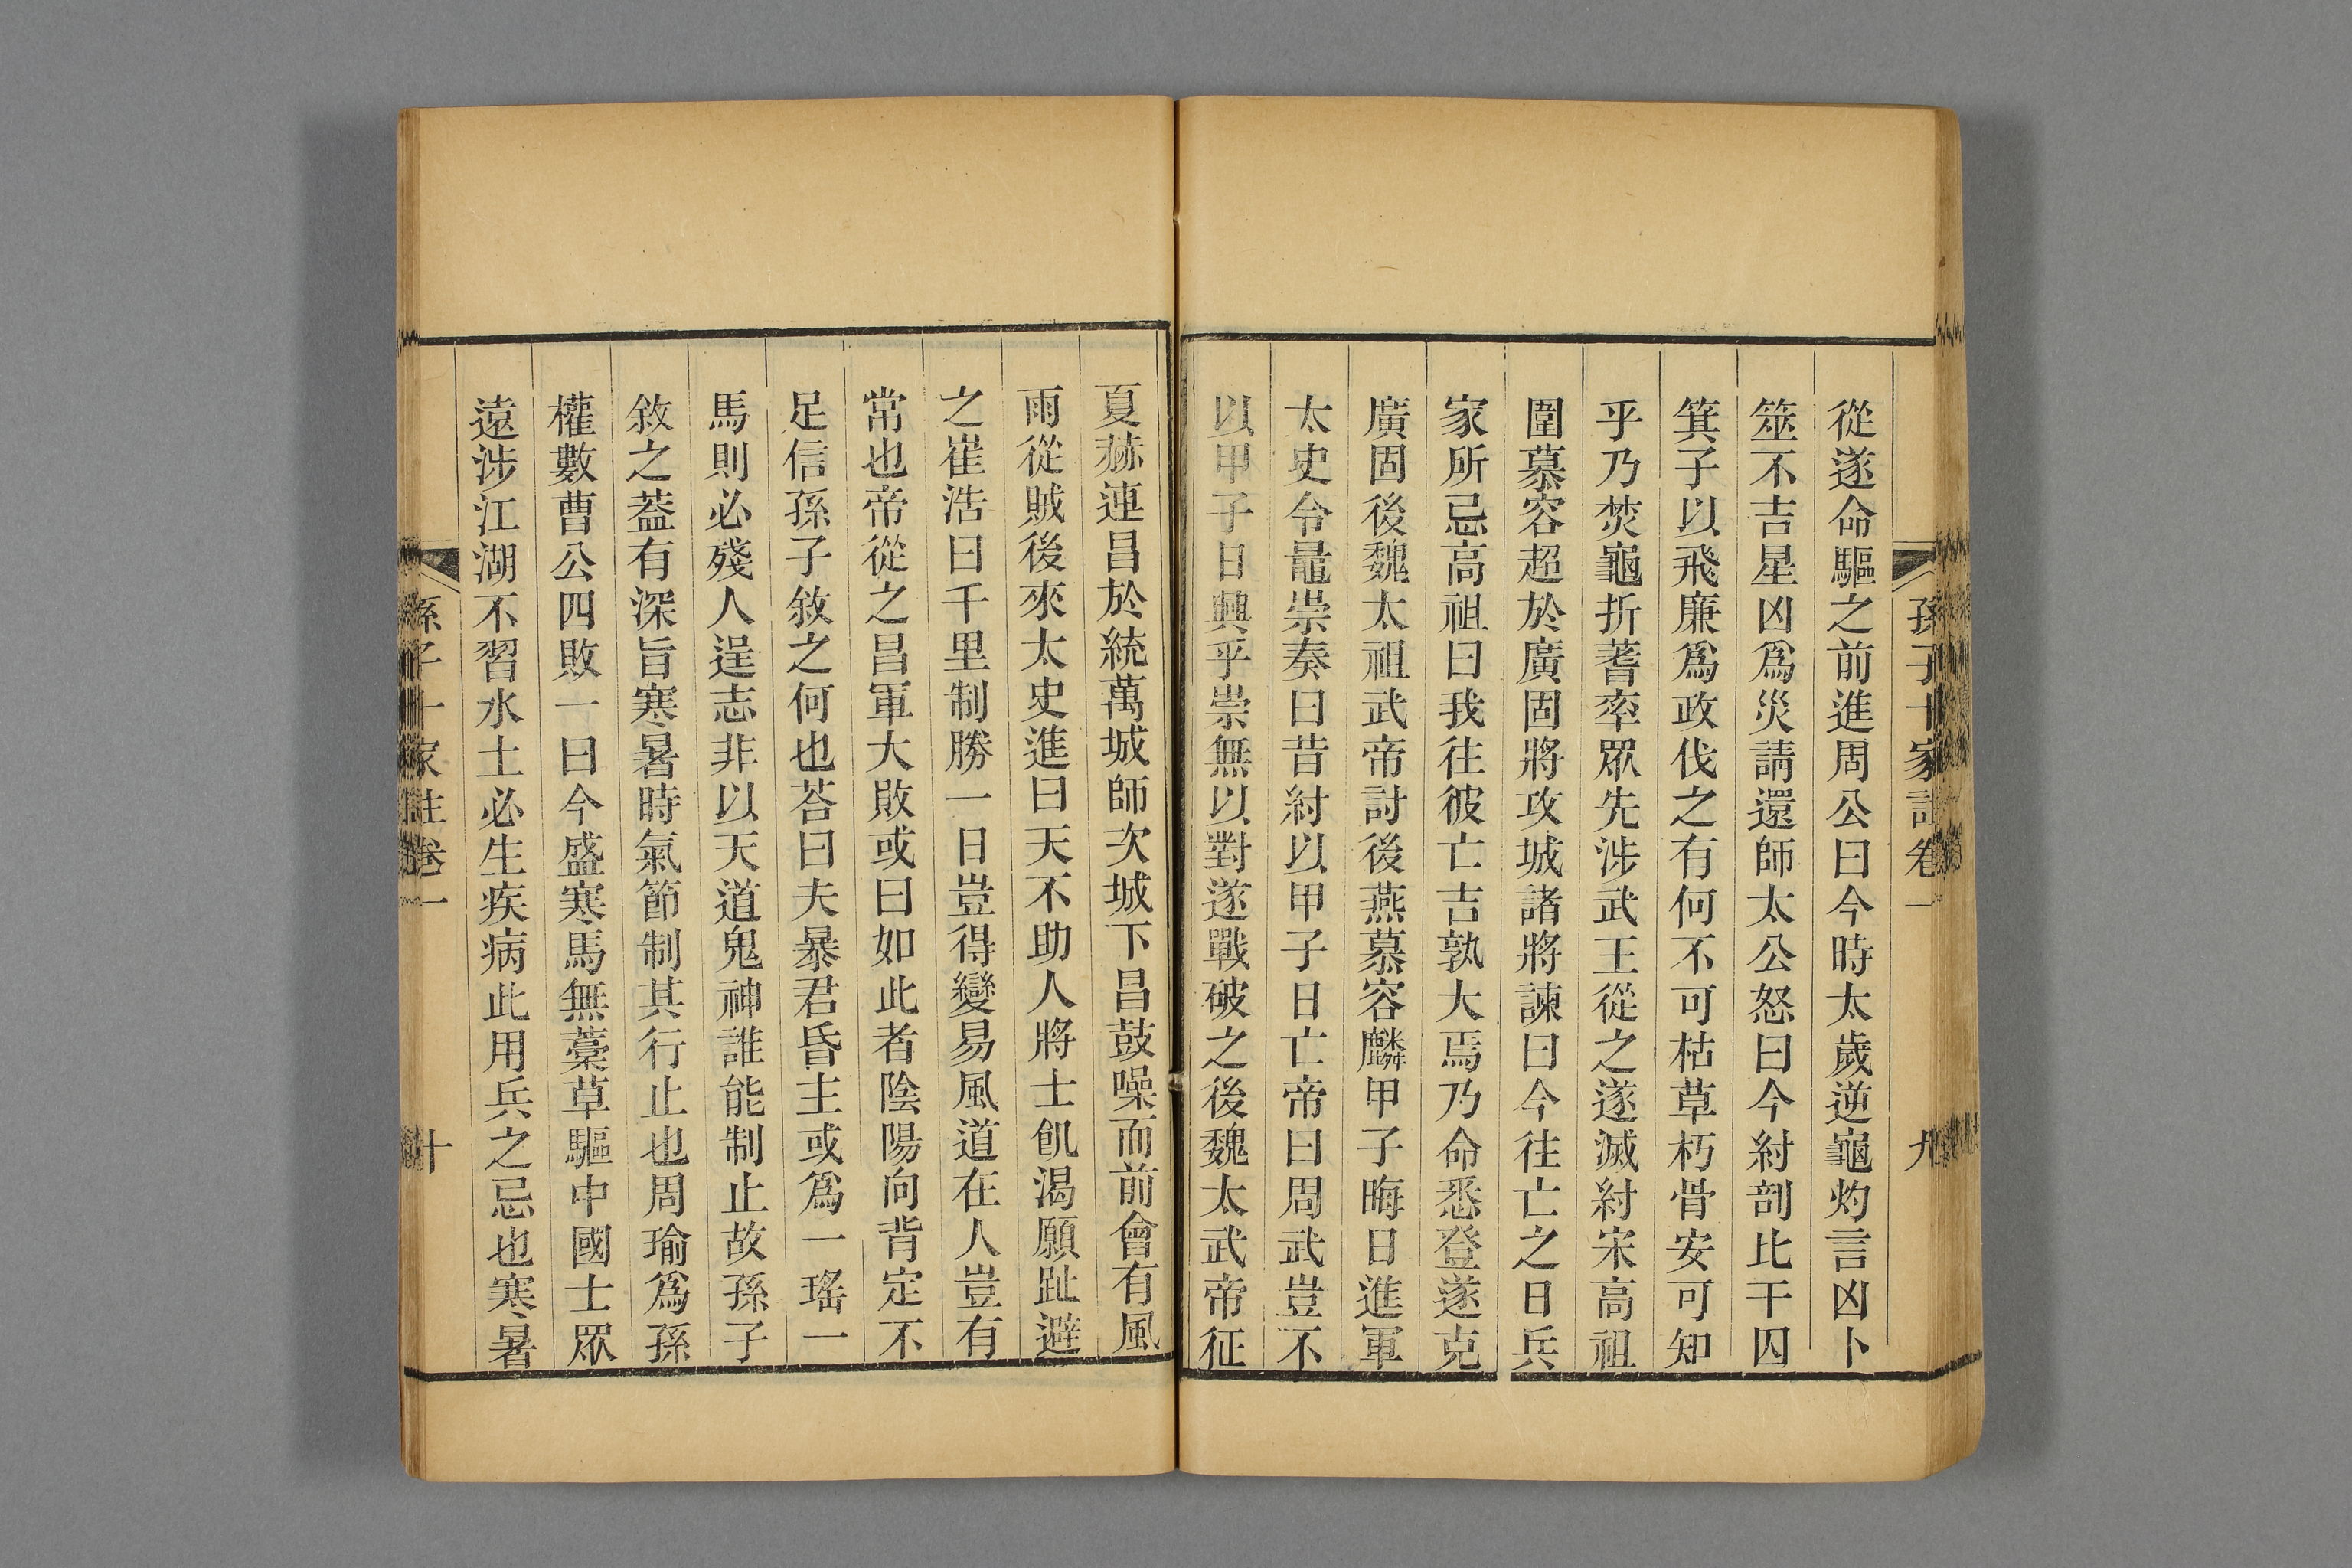 孫子十家註卷一 九
從遂命驅之前進周公曰今時太歲逆龜灼言凶卜
筮不吉星凶爲災請還師太公怒曰今紂剖比干囚
箕子以飛廉爲政伐之有何不可枯草朽骨安可知
乎乃焚龜折蓍率眾先涉武王從之遂滅紂宋高祖
圍慕容超於廣固將攻城諸將諫曰今往亡之日兵
家所忌高祖曰我往彼亡吉孰大焉乃命悉登遂克
廣固後魏太祖武帝討後燕慕容麟甲子晦日進軍
太史令鼂崇奏曰昔紂以甲子日亡帝曰周武豈不
以甲子日興乎崇無以對遂戰破之後魏太武帝征
夏赫連昌於統萬城師次城下昌鼓噪而前會有風
雨從賊後來太史進曰天不助人將士飢渴願趾避
之崔浩曰千里制勝一日豈得變易風道在人豈有
常也帝從之昌軍大敗或曰如此者陰陽向背定不
足信孫子敘之何也荅曰夫暴君昏主或爲一瑤一
馬則必殘人逞志非以天道鬼神誰能制止故孫子
敘之葢有深旨寒暑時氣節制其行止也周瑜爲孫
權數曹公四敗一曰今盛寒馬無藁草驅中國士眾
遠涉江湖不習水土必生疾病此用兵之忌也寒暑
孫子十家註卷一 十